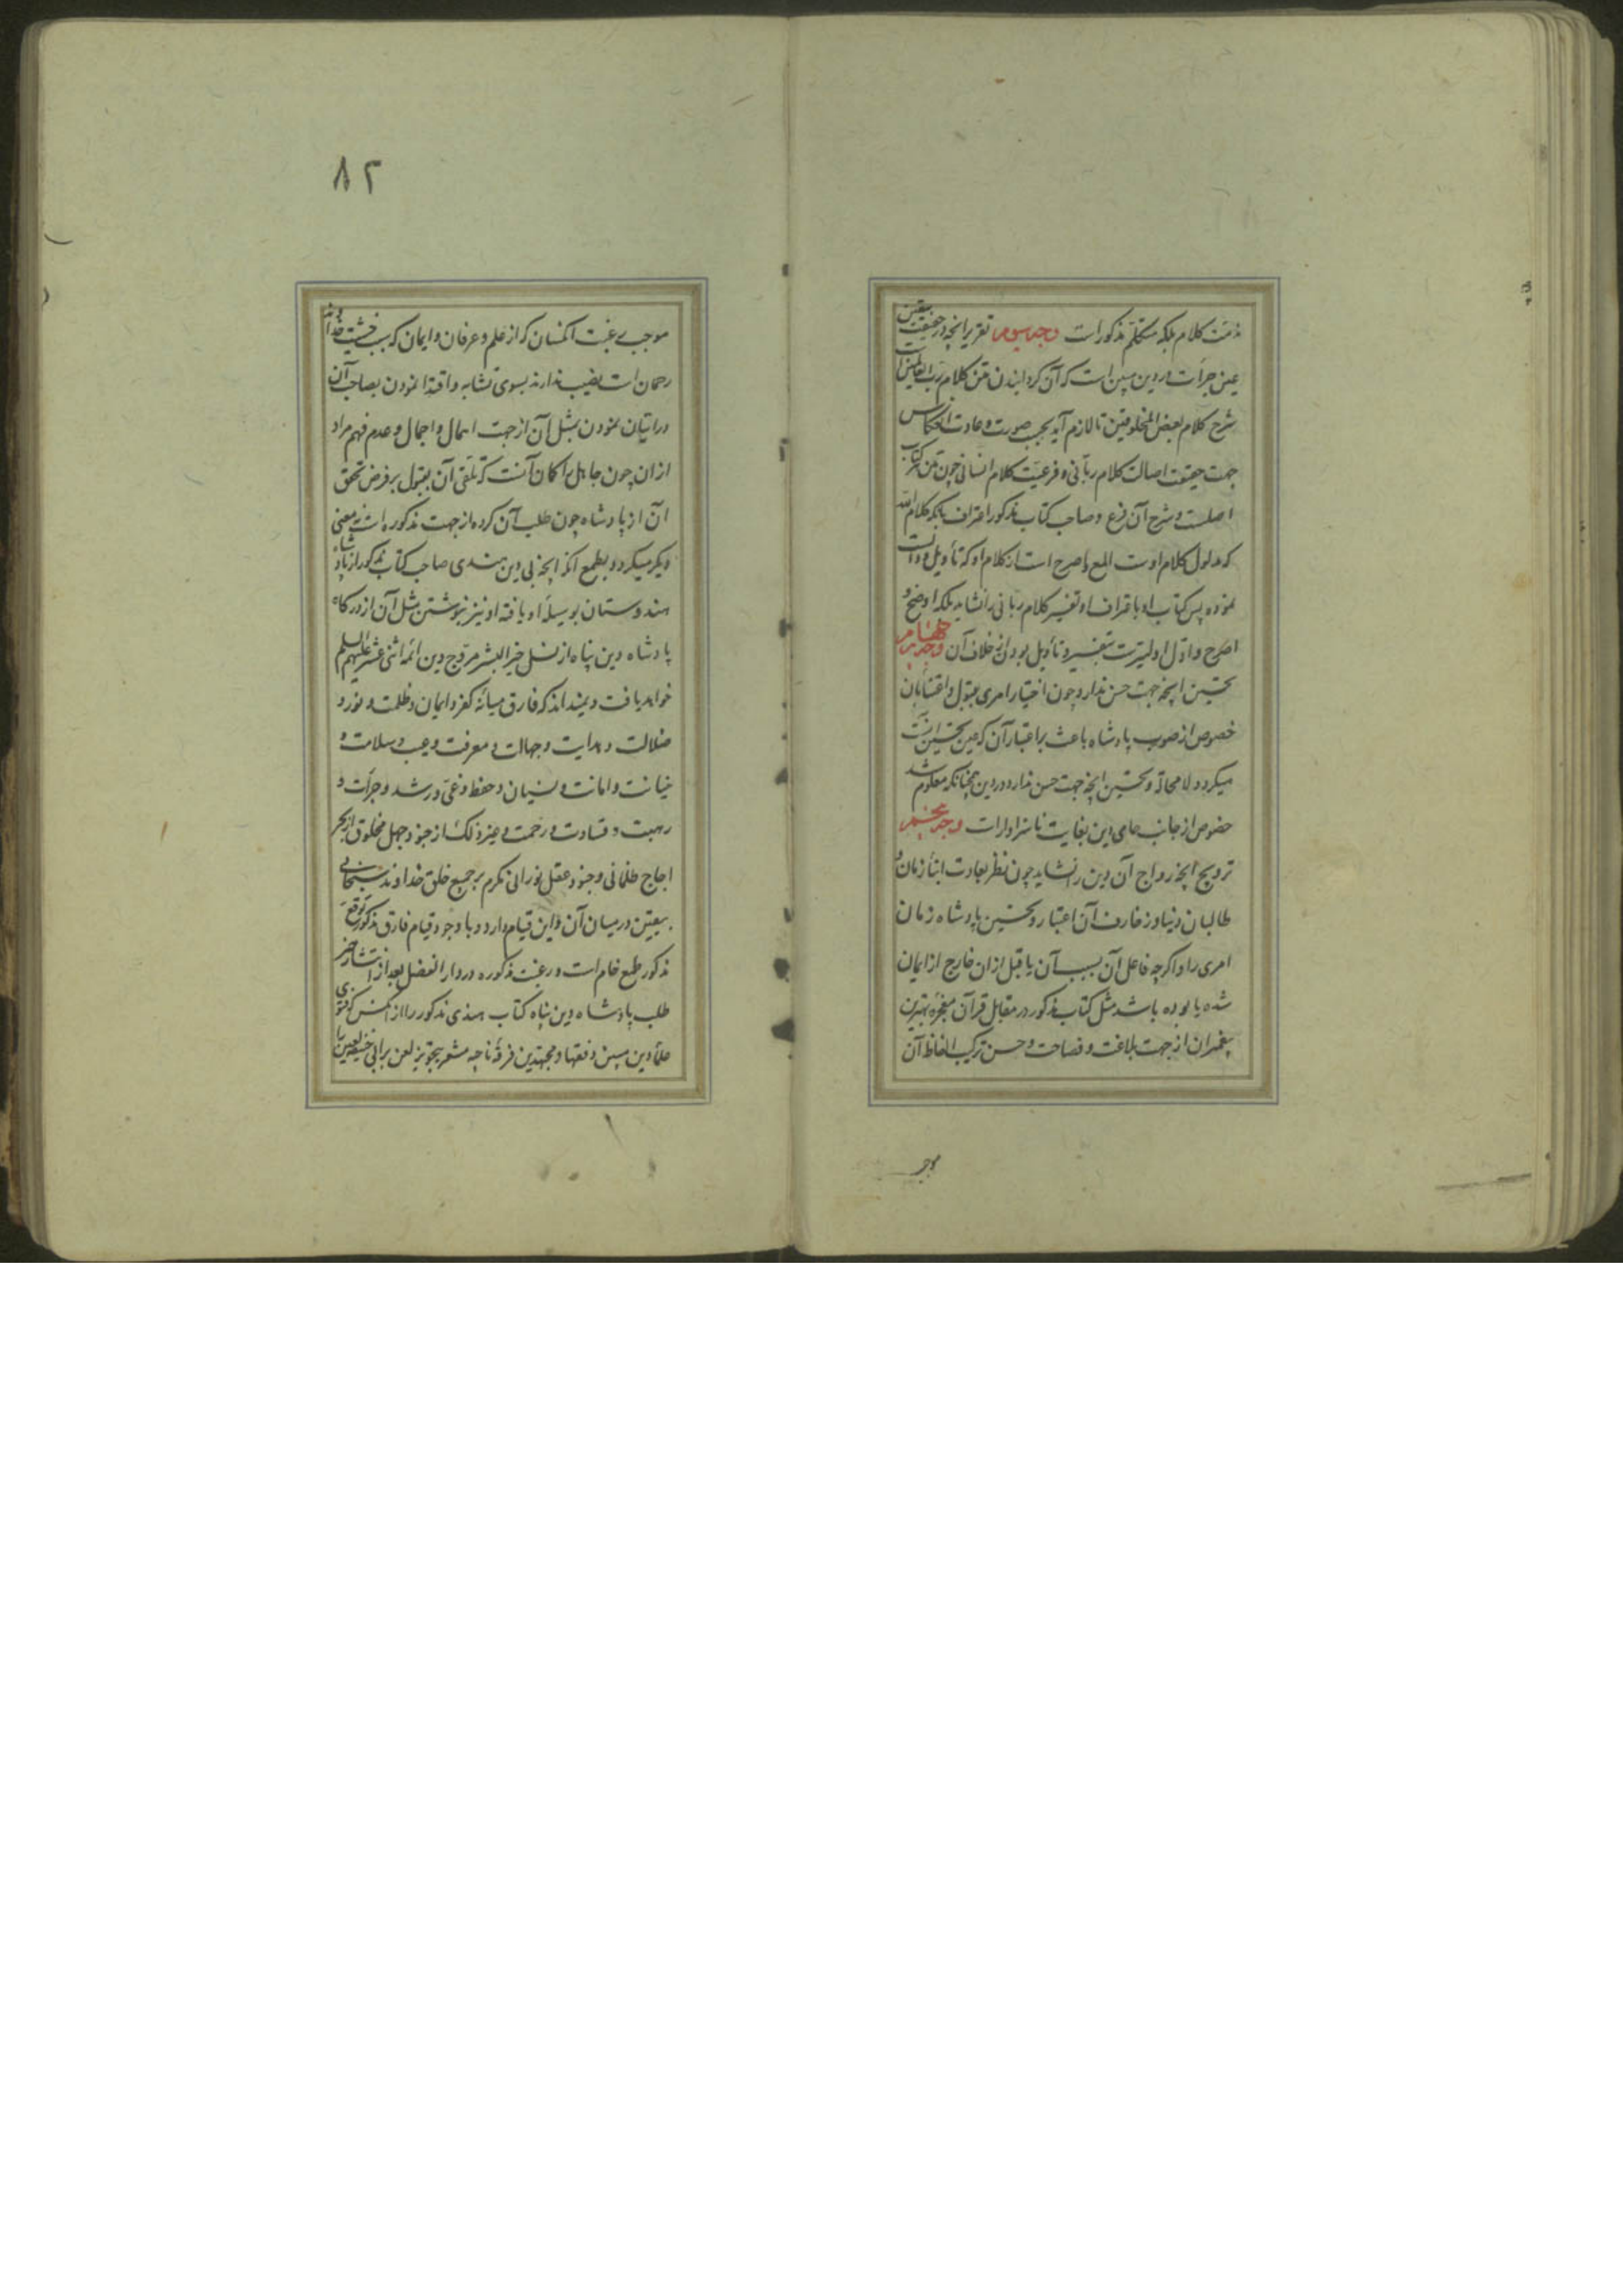 مذمّت کلام بلکه متکلّم مذکور است وجه سوم تقریر آنچه در حقیقت بیقین
عین جرأت در دین مبین است که آن گردانیدن متن کلام ربّ العالمین است
شرح کلام بعض المخلوقین تا لازم آید بحسب صورت و عادت انعکاس
جهت حقیقت اصالت کلام ربّانی و فرعیّت کلام انسانی چون متن هر کتاب
اصلست و شرح آن فرع و صاحب کتاب مذکور اعتراف بآنکه کلام الله
که مدلول کلام اوست المع و اصرح است از کلام او که تأویل و دانست
نموده پس کتاب او باعتراف او تفسیر کلام ربانی را نشاید بلکه اوضح و
اصرح و ادلّ اولیترست بتفسیر و تأویل بودن از خلاف آن وجه چهارم
تحسین آنچه جهت حسن ندارد چون اختیار امری بقبول و اعتنا بآن
خصوص از صوب پادشاه باعث بر اعتبار آن که عین تحسین آنست
میگردد لا محالة و تحسین آنچه جهت حسن ندارد در دین چنانکه معلوم شد
خصوص از جانب حامی دین بغایت ناسزاوار است وجه پنجم
ترویج آنچه رواج آن دین را نشاید چون نظر بعادت ابناء زمان و
طالبان دنیا و زخارف آن اعتبار و تحسین پادشاه زمان
امری را و اگرچه فاعل آن بسبب آن یا قبل از آن خارج از ایمان
شده یا بوده باشد مثل کتاب مذکور در مقابل قرآن معجزه بهترین
پیغمبران از جهت بلاغت و فصاحت و حسن ترکیب الفاظ آن
موجب
۸۲
موجب رغبت آنکسان که از علم و عرفان و ایمان که سبب خشیت خداوند
رحمان است نصیب ندارند بسوی تشابه و اقتدا نمودن بصاحب آن
در اتیان نمودن بمثل آن از جهت اهمال و اجمال و عدم فهم مراد
از آن چون جاهل را گمان آنست که تلقّی آن بقبول بر فرض تحقق
آن از پادشاه چون طلب آن کرده از جهت مذکوره است نه معنی
دیگر میگردد بطمع آنکه آنچه بی دین هندی صاحب کتاب مذکور از پادشاه
هندوستان بوسیله او یافته او نیز بنوشتن مثل آن از درگاه
پادشاه دین پناه از نسل خیر البشر مروّج دین ائمه اثنی عشر علیهم السلم
خواهد یافت و نمیداند که فارق میانه کفر و ایمان و ظلمت و نور و
ضلالت و هدایت و جهالت و معرفت و عیب و سلامت و
خیانت و امانت و نسیان و حفظ و غیّ و رشد و جرأت و
رهبت و قساوت و رحمت و غیر ذلک از جنود جهل مخلوق از بحر
اجاج ظلمانی و جنود عقل نورانی مکرم بر جمیع خلق خداوند سبحانی
بیقین در میان آن و این قیام دارد و با وجود قیام فارق مذکور توقع
مذکور طمع خام است و رغبت مذکوره در دار الفضل بعد از انتشار خبر
طلب پادشاه دین پناه کتاب هندی مذکور را از آنکس که فتوی
علماء دین مبین و فقها و مجتهدین فرقه ناجیه مشعر بتجویز لعن بر ابی